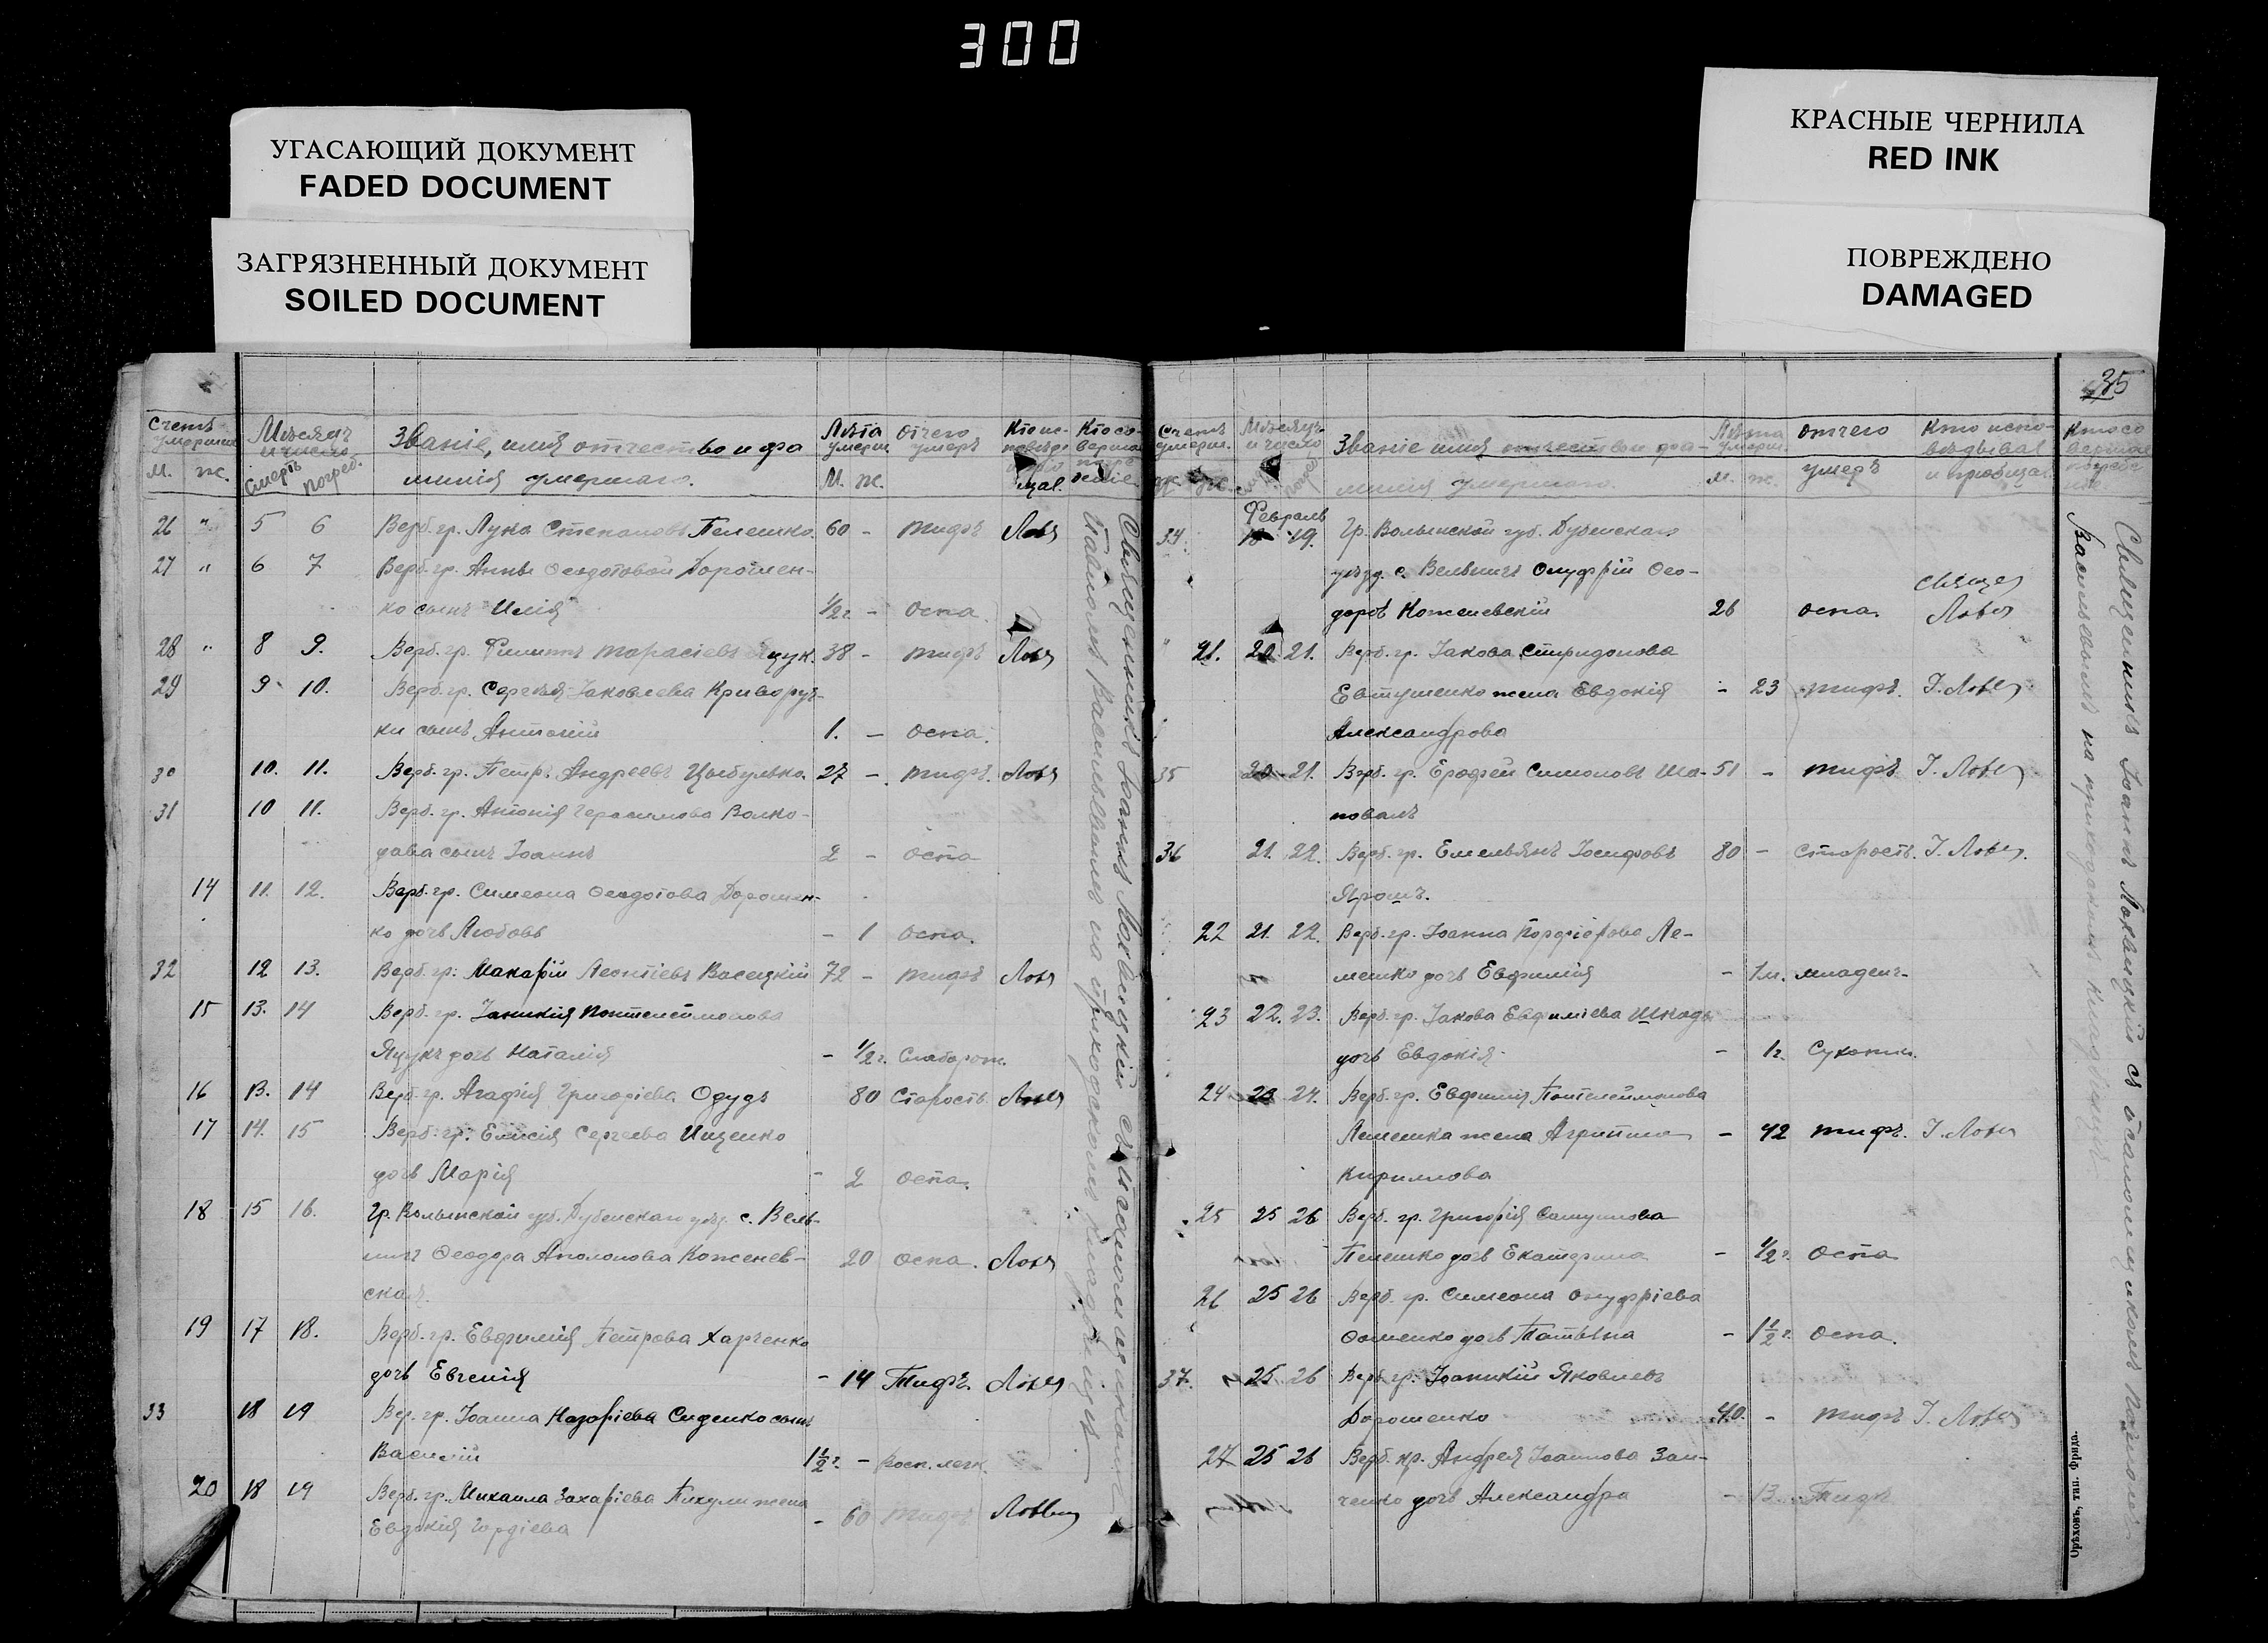 300
УГАСАЮЩИЙ ДОКУМЕНТ
FADED DOCUMENT
ЗАГРЯЗНЕННЫЙ ДОКУМЕНТ
SOILED DOCUMENT
КРАСНЫЕ ЧЕРНИЛА
RED INK
ПОВРЕЖДЕНО
DAMAGED
Счетъ умерших М. Ж.
Мѣсяцъ и число смерть погреб.
Званіе, имя отчество и фа
милія умершаго.
Лѣта умерш. М. Ж.
Отчего умеръ
26 " 5 6 Верб. гр. Лука Степановъ Пелешко. 60 - тифъ Лохв
27 " 6 7 Верб. гр. Анны Ѳеодотовой Дорошен-
ко сынъ Илія 1/2 г - оспа.
28 " 8 9. Верб. гр. Филиппъ Тарасіевъ 38 - тифъ Лохв
29 9 10. Верб. гр. Сергѣя Іаковлева Криворуч-
ки сынъ Антоній 1. - оспа.
30 10. 11. Верб. гр. Петръ Андреевъ Цыбулько. 27 - тифъ. Лохв
31 10 11. Верб. гр. Антонія Герасимова Волко-
дава сынъ Іоаннъ 2 - оспа
14 11. 12. Верб. гр. Симеона Ѳеодотова Дорошен-
ко дочь Любовь - 1 оспа.
32 12 13. Верб. гр. Макарій Леонтіевъ Васецкій 72 - тифъ Лохв
15 13. 14 Верб. гр. Іоаникія Понтелеймонова
Яцукъ дочь Наталія - 1/2 г. Слаборож.
16 13. 14 Верб. гр. Агафія Григоріева Одудъ 80 Старость Лохв
17 14. 15 Верб. гр. Елисія Сергеева Ищенко
дочь Марія - 2 оспа.
18 15 16. Гр. Волынской губ. Дубенскаго уѣзд. с. Вель-
Ѳеодора Аполонова Коженев- 20 оспа. Лохв
ская.
19 17 18. Верб. гр. Евфимія Петрова Харченко
дочь Евгенія - 14 Тифъ. Лохв
33 18 19 Вер. гр. Іоанна Назаріева Сиденко сынъ
Василій 1 1/2 г. - Восп. легк.
20 18 19 Верб. гр. Михаила Захаріева жена
Евдокія Гордіева - 60 тифъ Лохвиц
Священникъ Іоаннъ Лохвицкій съ псаломщикомъ
Павломъ Васильевымъ на приходскомъ кладбищѣ
35
Счетъ умерш. Ж.
Мѣсяцъ и число
Званіе имя отчество и фа-
милія умершаго.
Лѣта умерш. М. Ж.
отчего умеръ
Кто испо-
вѣдывал
и пріобщал
Февраль
34. 18 19. Гр. Волынской губ. Дубенскаго
уѣзд. с. Онуфрій Ѳео-
доровъ Коженевскій 26 оспа. Свящ Лохв
" 21. 20. 21. Верб. гр. Іакова Спиридонова
Евтушенко жена Евдокія - 23 тифъ. І. Лохв
Александрова
35 20 21. Верб. гр. Ерофей Симоновъ Ша- 51 - тифъ І. Лохв
повалъ
36 21. 22. Верб. гр. Емельянъ Іосифовъ 80 - Старость. І. Лохв.
Ярошъ.
22 21. 22. Верб. гр. Іоанна Порфіріева Ле-
мешко дочь Евфимія - 1 м. младенч-
23 22. 23. Верб. гр. Іакова Евфиміева Шкоды
дочь Евдокія - 1 г. Сухотка.
24 23 24. Верб. гр. Евфимія Понтелеймонова
жена Агрипина - 42 тифъ. І. Лохв
Кириллова
25 25 26 Верб. гр. Григорія Самуилова
Пелешко дочь Екатерина - 1/2 г. оспа
26 25 26 Верб. гр. Симеона Онуфріева
Ѳоменко дочь Татьяна - 1 1/2 г. оспа.
37. 25 26 Верб. гр. Іоаникій Яковлевъ
Дорошенко 40. - тифъ І. Лохв
27 25 26 Верб. гр. Андрея Іоаннова Зан-
ченко дочь Александра - 13 Тифъ
Священникъ Іоаннъ Лохвицкій съ псаломщикомъ Павломъ
Васильевымъ на приходскомъ кладбищѣ
Орѣховъ, тип. Фрида.